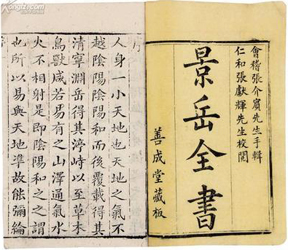 會稽張介賓先生手輯
仁和張獻輝先生校閱
景岳全書
善成堂藏板
人身一小天地也天地之氣不
越陰陽陰陽和而後覆載得其
清寧川岳得其渟峙以至草木
鳥獸咸若易有之山澤通氣水
火不相射是即陰陽和之之謂
也所以易與天地準故能彌綸